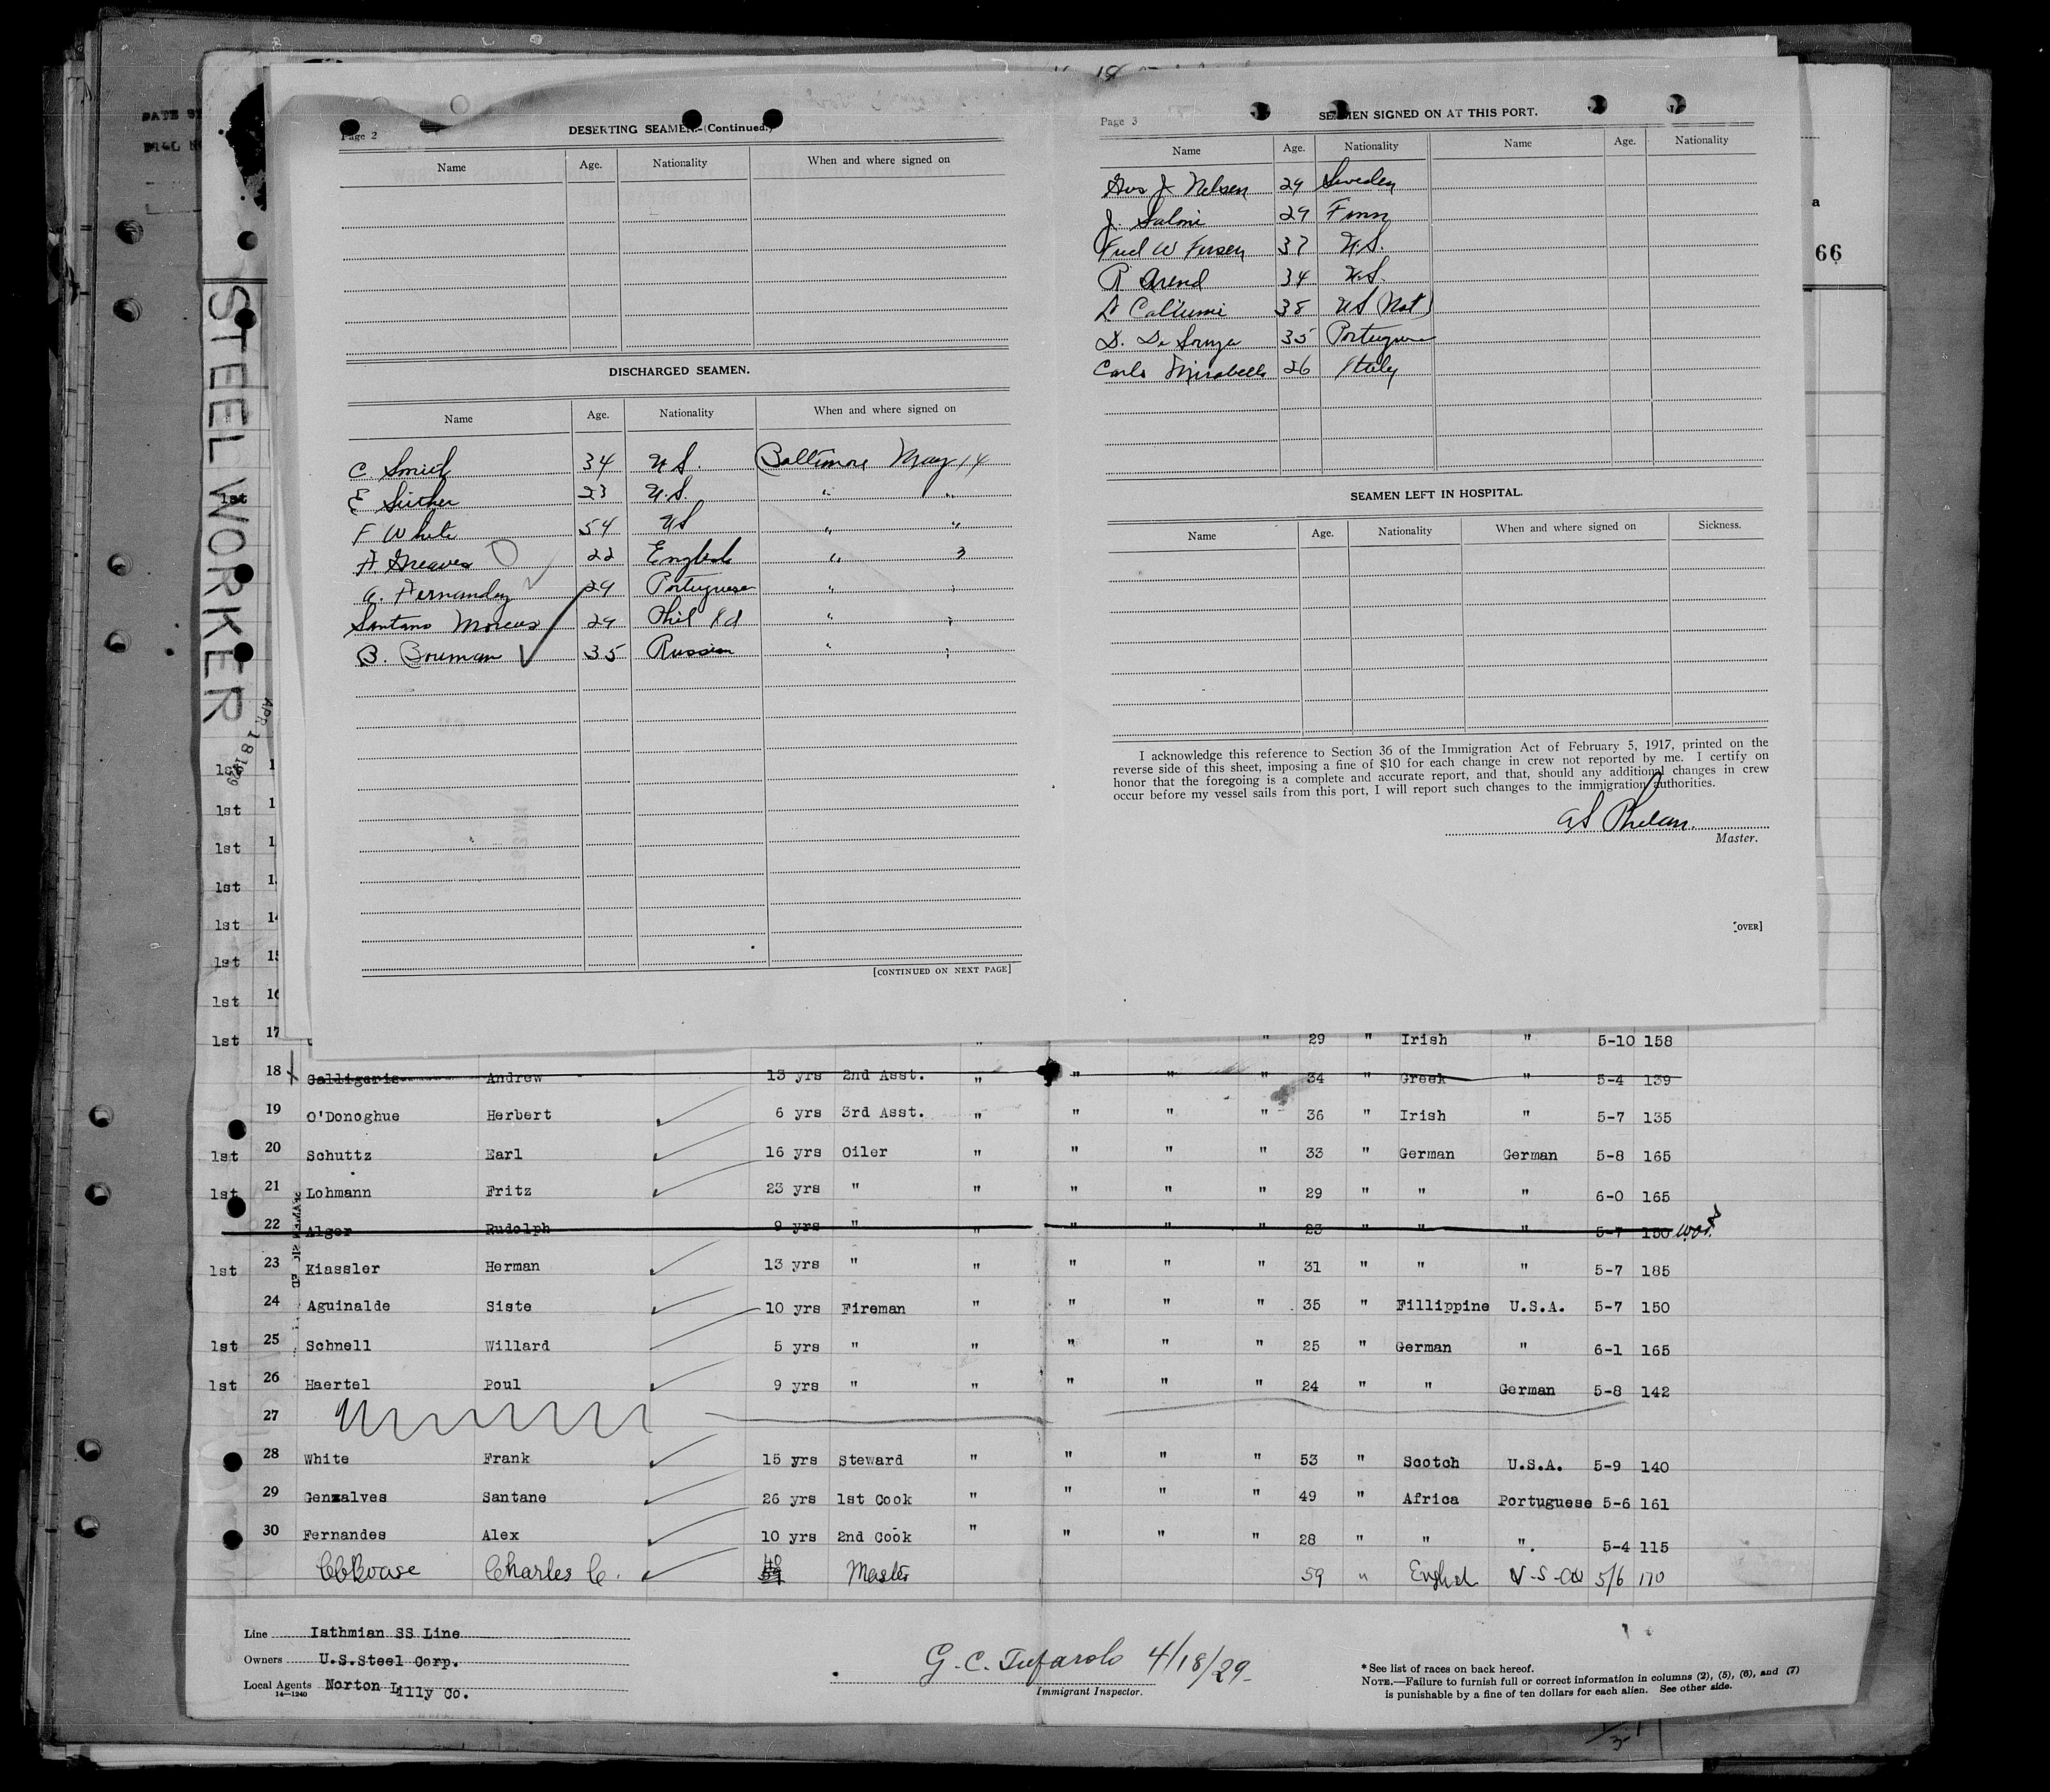 STEEL WORKER
APR 18 1929
66
Page 2
DESERTING SEAMEN. (Continued.)
Name Age. Nationality When and where signed on
DISCHARGED SEAMEN.
Name Age. Nationality When and where signed on
C. Smith 34 U.S. Baltimore May 14
E 23 U.S. " "
F White 54 US " "
A. Greaves 22 English " 3
A. Fernandez 29 Portuguese " "
Santano Morcus 29 Phil Id " "
B. Bouman 35 Russian " "
[CONTINUED ON NEXT PAGE]
Page 3
SEAMEN SIGNED ON AT THIS PORT.
Name Age. Nationality Name Age. Nationality
Gus J Nelsen 24 Sweden
J. Salmi 29 Finn
Fred W Fersen 37 U.S.
R Arend 34 U.S.
38 US (Nat)
D. De Souza 35 Portuguese
Carlo Mirabella 26 Italy
SEAMEN LEFT IN HOSPITAL.
Name Age. Nationality When and where signed on Sickness.
I acknowledge this reference to Section 36 of the Immigration Act of February 5, 1917, printed on the
reverse side of this sheet, imposing a fine of $10 for each change in crew not reported by me. I certify on
honor that the foregoing is a complete and accurate report, and that, should any additional changes in crew
occur before my vessel sails from this port, I will report such changes to the immigration authorities.
AS Phelan
Master.
[OVER]
1st
1st 1
1st 1
1st 1
1st 1
1st 14
1st 15
1st 16
1st 17 " " 29 " Irish " 5-10 158
18 Galligaris Andrew 13 yrs 2nd Asst. " " " " 34 " Greek " 5-4 139
19 O'Donoghue Herbert 6 yrs 3rd Asst. " " " " 36 " Irish " 5-7 135
1st 20 Schuttz Earl 16 yrs Oiler " " " " 33 " German German 5-8 165
1st 21 Lohmann Fritz 23 yrs " " " " " 29 " " " 6-0 165
22 Alger Rudolph 9 yrs " " " " " 23 " " " 5-7 150
1st 23 Kiassler Herman 13 yrs " " " " " 31 " " " 5-7 185
24 Aguinalde Siste 10 yrs Fireman " " " " 35 " Fillippine U.S.A. 5-7 150
1st 25 Schnell Willard 5 yrs " " " " " 25 " German " 6-1 165
1st 26 Haertel Poul 9 yrs " " " " " 24 " " German 5-8 142
27
28 White Frank 15 yrs Steward " " " " 53 " Scotch U.S.A. 5-9 140
29 Genzalves Santane 26 yrs 1st Cook " " " " 49 " Africa Portuguese 5-6 161
30 Fernandes Alex 10 yrs 2nd Cook " " " " 28 " " " 5-4 115
Charles C. 40 Master 59 " English 5/6 170
Line Isthmian SS Line
Owners U.S.Steel Corp.
Local Agents Norton Lilly Co.
14—1240
G. C. Tufarolo 4/18/29
Immigrant Inspector.
* See list of races on back hereof.
NOTE.—Failure to furnish full or correct information in columns (2), (5), (6), and (7)
is punishable by a fine of ten dollars for each alien. See other side.